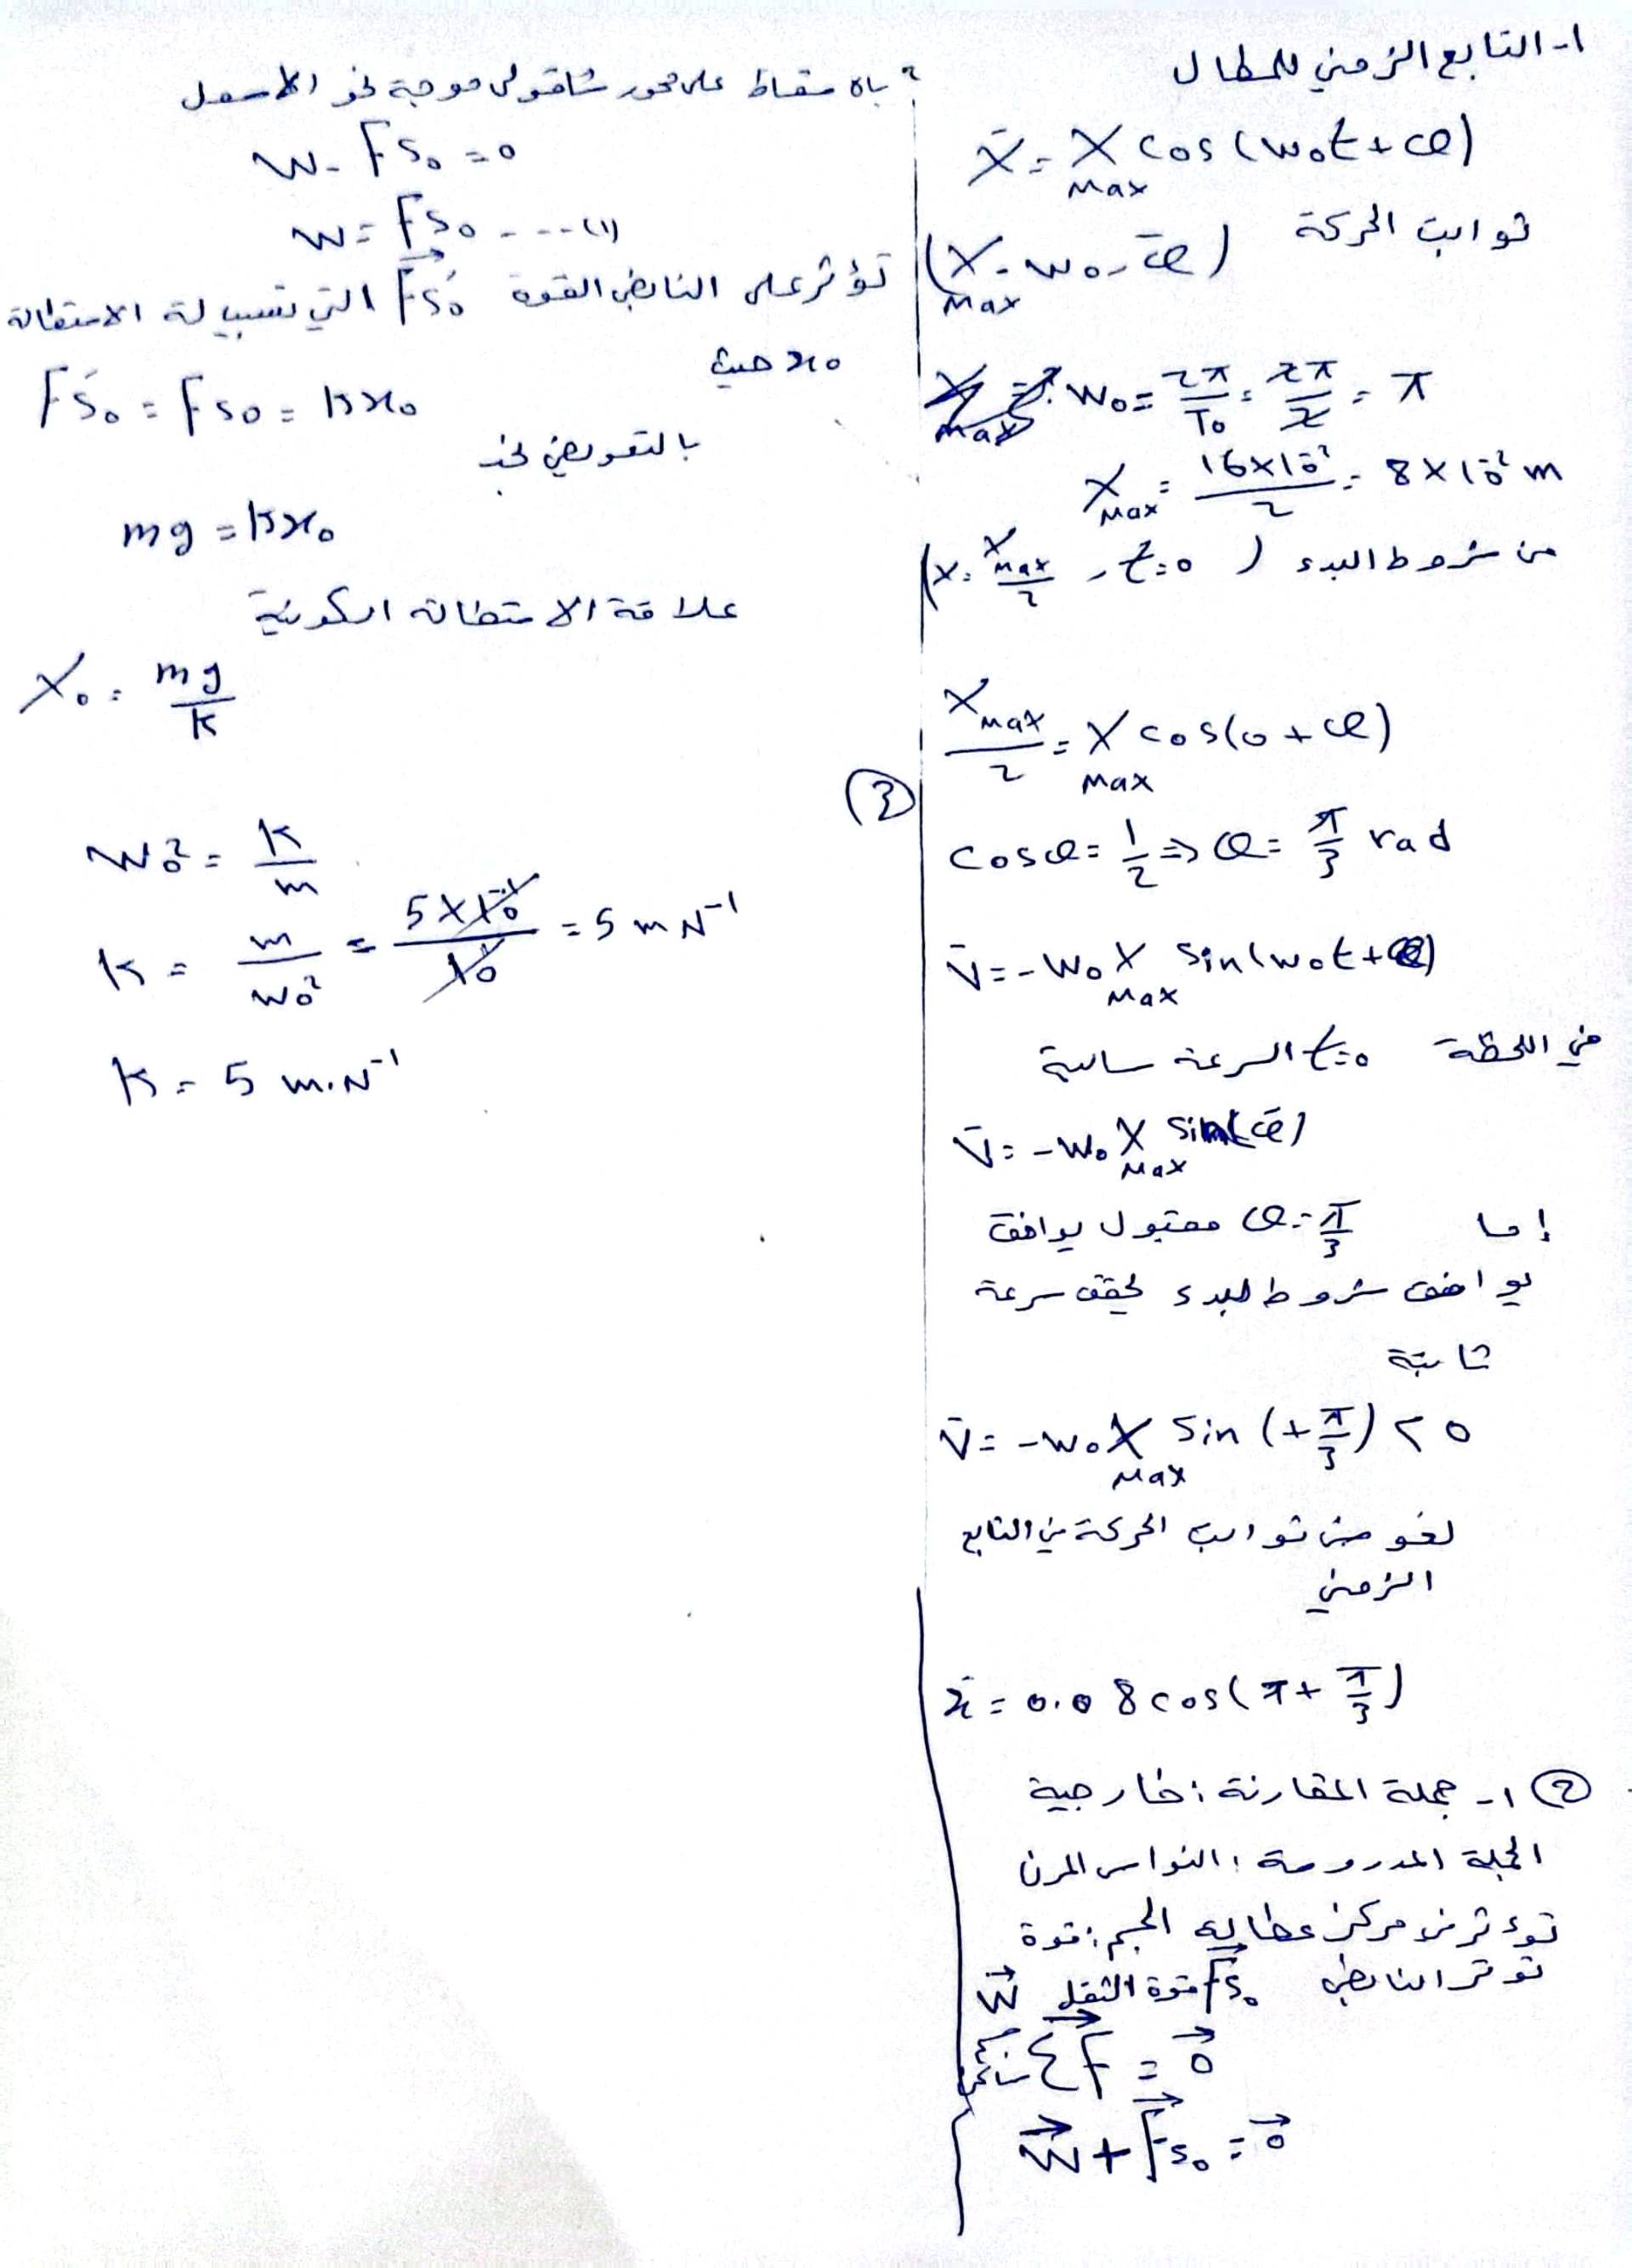 ١- التابع الزمني للمطال
x̄ = Xmax cos(ω₀t + φ)
ثوابت الحركة (Xmax , ω₀ , φ̄)
ω₀ = 2π/T₀ = 2π/2 = π
Xmax = 16×10⁻²/2 = 8×10⁻² m
من شروط البدء (t=0 , x = Xmax/2)
Xmax/2 = Xmax cos(0 + φ)
cosφ = 1/2 ⇒ φ = π/3 rad
v̄ = -ω₀ Xmax sin(ω₀t + φ)
في اللحظة t=0 السرعة سالبة
v̄ = -ω₀ Xmax sin(φ̄)
إما φ = π/3 مقبول يوافق
يوافق شروط البدء يحقق سرعة
ثابتة
v̄ = -ω₀ Xmax sin(+π/3) < 0
نعوض ثوابت الحركة في التابع
الزمني
x̄ = 0.08 cos(π + π/3)
② ١- جملة المقارنة: خارجية
الجملة المدروسة: النواس المرن
تؤثر في مركز عطالة الجسم: قوة
توتر النابض F⃗s₀ قوة الثقل W⃗
ΣF⃗ = 0⃗
W⃗ + F⃗s₀ = 0⃗
بالاسقاط على محور شاقولي موجبة نحو الاسفل
W - Fs₀ = 0
W = Fs₀ ---- (1)
تؤثر على النابض القوة F⃗s₀′ التي تسبب له الاستطالة
x₀ حيث
Fs₀′ = Fs₀ = kx₀
بالتعويض نجد
mg = kx₀
علاقة الاستطالة السكونية
X₀ = mg/k
③
ω₀² = k/m
k = m/ω₀² = 5×10⁻¹/10 = 5 mN⁻¹
k = 5 m.N⁻¹